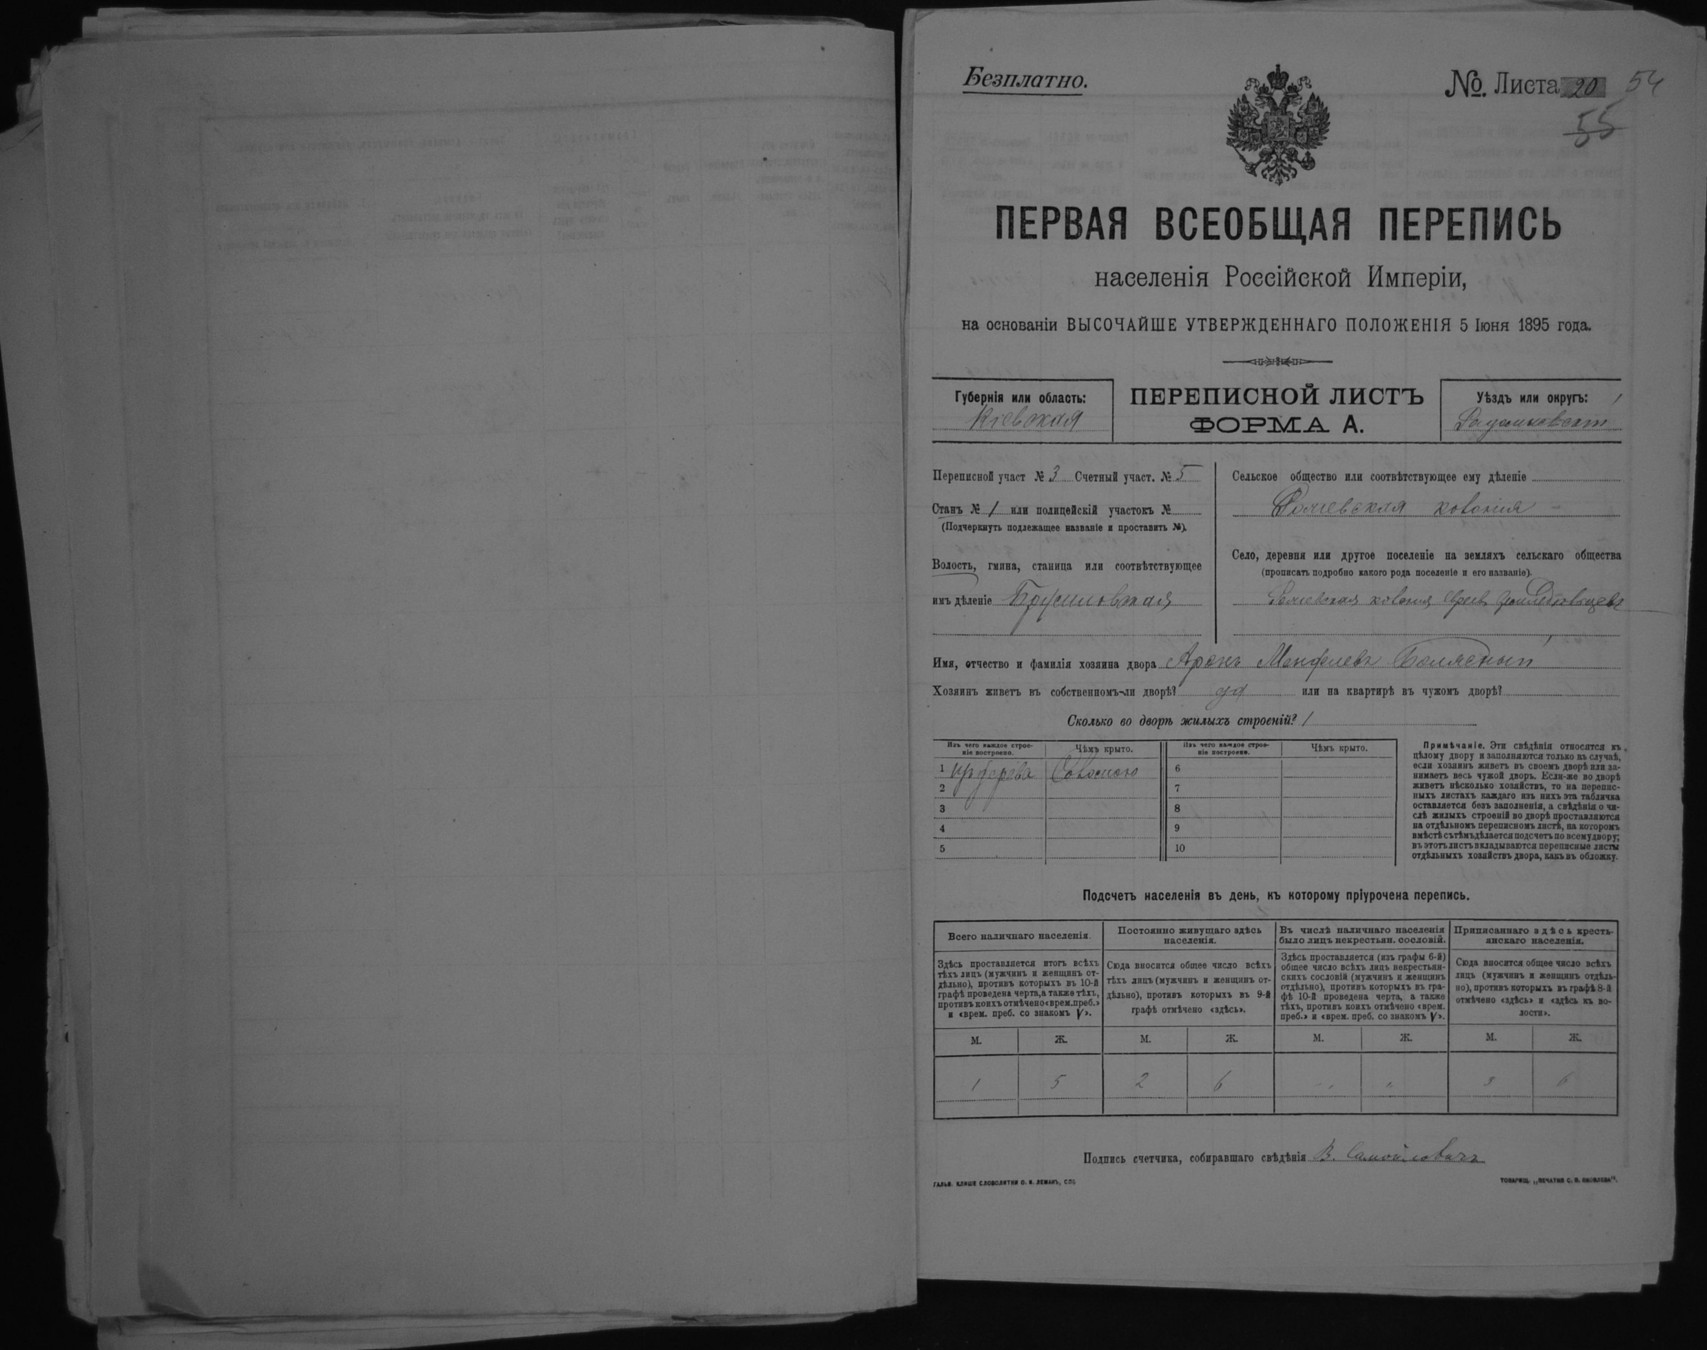 Безплатно.
№. Листа 20 54
55
ПЕРВАЯ ВСЕОБЩАЯ ПЕРЕПИСЬ
населенія Россійской Имперіи,
на основаніи ВЫСОЧАЙШЕ УТВЕРЖДЕННАГО ПОЛОЖЕНІЯ 5 Іюня 1895 года.
Губернія или область:
Кіевская
ПЕРЕПИСНОЙ ЛИСТЪ
ФОРМА А.
Уѣздъ или округъ:
Переписной участ № 3 Счетный участ. № 5
Станъ № 1 или полицейскій участокъ №
(Подчеркнуть подлежащее названіе и проставить №).
Волость, гмина, станица или соотвѣтствующее
имъ дѣленіе Брусиловская
Сельское общество или соотвѣтствующее ему дѣленіе
колонія
Село, деревня или другое поселеніе на земляхъ сельскаго общества
(прописать подробно какого рода поселеніе и его названіе).
колонія
Имя, отчество и фамилія хозяина двора Аронъ
Хозяинъ живетъ въ собственномъ-ли дворѣ? да или на квартирѣ въ чужомъ дворѣ?
Сколько во дворѣ жилыхъ строеній? 1
Изъ чего каждое строе-
ніе построено.
Чѣмъ крыто.
Изъ чего каждое строе-
ніе построено.
Чѣмъ крыто.
1 изъ дерева Соломою
2
3
4
5
6
7
8
9
10
Примѣчаніе. Эти свѣдѣнія относятся къ
цѣлому двору и заполняются только въ случаѣ,
если хозяинъ живетъ въ своемъ дворѣ или за-
нимаетъ весь чужой дворъ. Если-же во дворѣ
живетъ нѣсколько хозяйствъ, то на перепис-
ныхъ листахъ каждаго изъ нихъ эта табличка
оставляется безъ заполненія, а свѣдѣнія о чи-
слѣ жилыхъ строеній во дворѣ проставляются
на отдѣльномъ переписномъ листѣ, на которомъ
вмѣстѣ съ тѣмъ дѣлается подсчетъ по всему двору;
въ этотъ листъ вкладываются переписные листы
отдѣльныхъ хозяйствъ двора, какъ въ обложку.
Подсчетъ населенія въ день, къ которому пріурочена перепись.
Всего наличнаго населенія.
Здѣсь проставляется итогъ всѣхъ
тѣхъ лицъ (мужчинъ и женщинъ от-
дѣльно), противъ которыхъ въ 10-й
графѣ проведена черта, а также тѣхъ,
противъ коихъ отмѣчено «врем. преб.»
и «врем. преб. со знакомъ V».
Постоянно живущаго здѣсь
населенія.
Сюда вносится общее число всѣхъ
тѣхъ лицъ (мужчинъ и женщинъ от-
дѣльно), противъ которыхъ въ 9-й
графѣ отмѣчено «здѣсь».
Въ числѣ наличнаго населенія
было лицъ некрестьян. сословій.
Здѣсь проставляется (изъ графы 6-й)
общее число всѣхъ лицъ некрестьян-
скихъ сословій (мужчинъ и женщинъ
отдѣльно), противъ которыхъ въ гра-
фѣ 10-й проведена черта, а также
тѣхъ, противъ коихъ отмѣчено «врем.
преб.» и «врем. преб. со знакомъ V».
Приписаннаго здѣсь кресть-
янскаго населенія.
Сюда вносится общее число всѣхъ
лицъ (мужчинъ и женщинъ отдѣль-
но), противъ которыхъ въ графѣ 8-й
отмѣчено «здѣсь» и «здѣсь въ во-
лости».
М. Ж. М. Ж. М. Ж. М. Ж.
1 5 2 6 3 6
Подпись счетчика, собиравшаго свѣдѣнія В. Самойловичъ
ГАЛЬВ. КЛИШЕ СЛОВОЛИТНИ О. И. ЛЕМАНЪ, СПБ
ТОВАРИЩ. „ПЕЧАТНЯ С. П. ЯКОВЛЕВА".